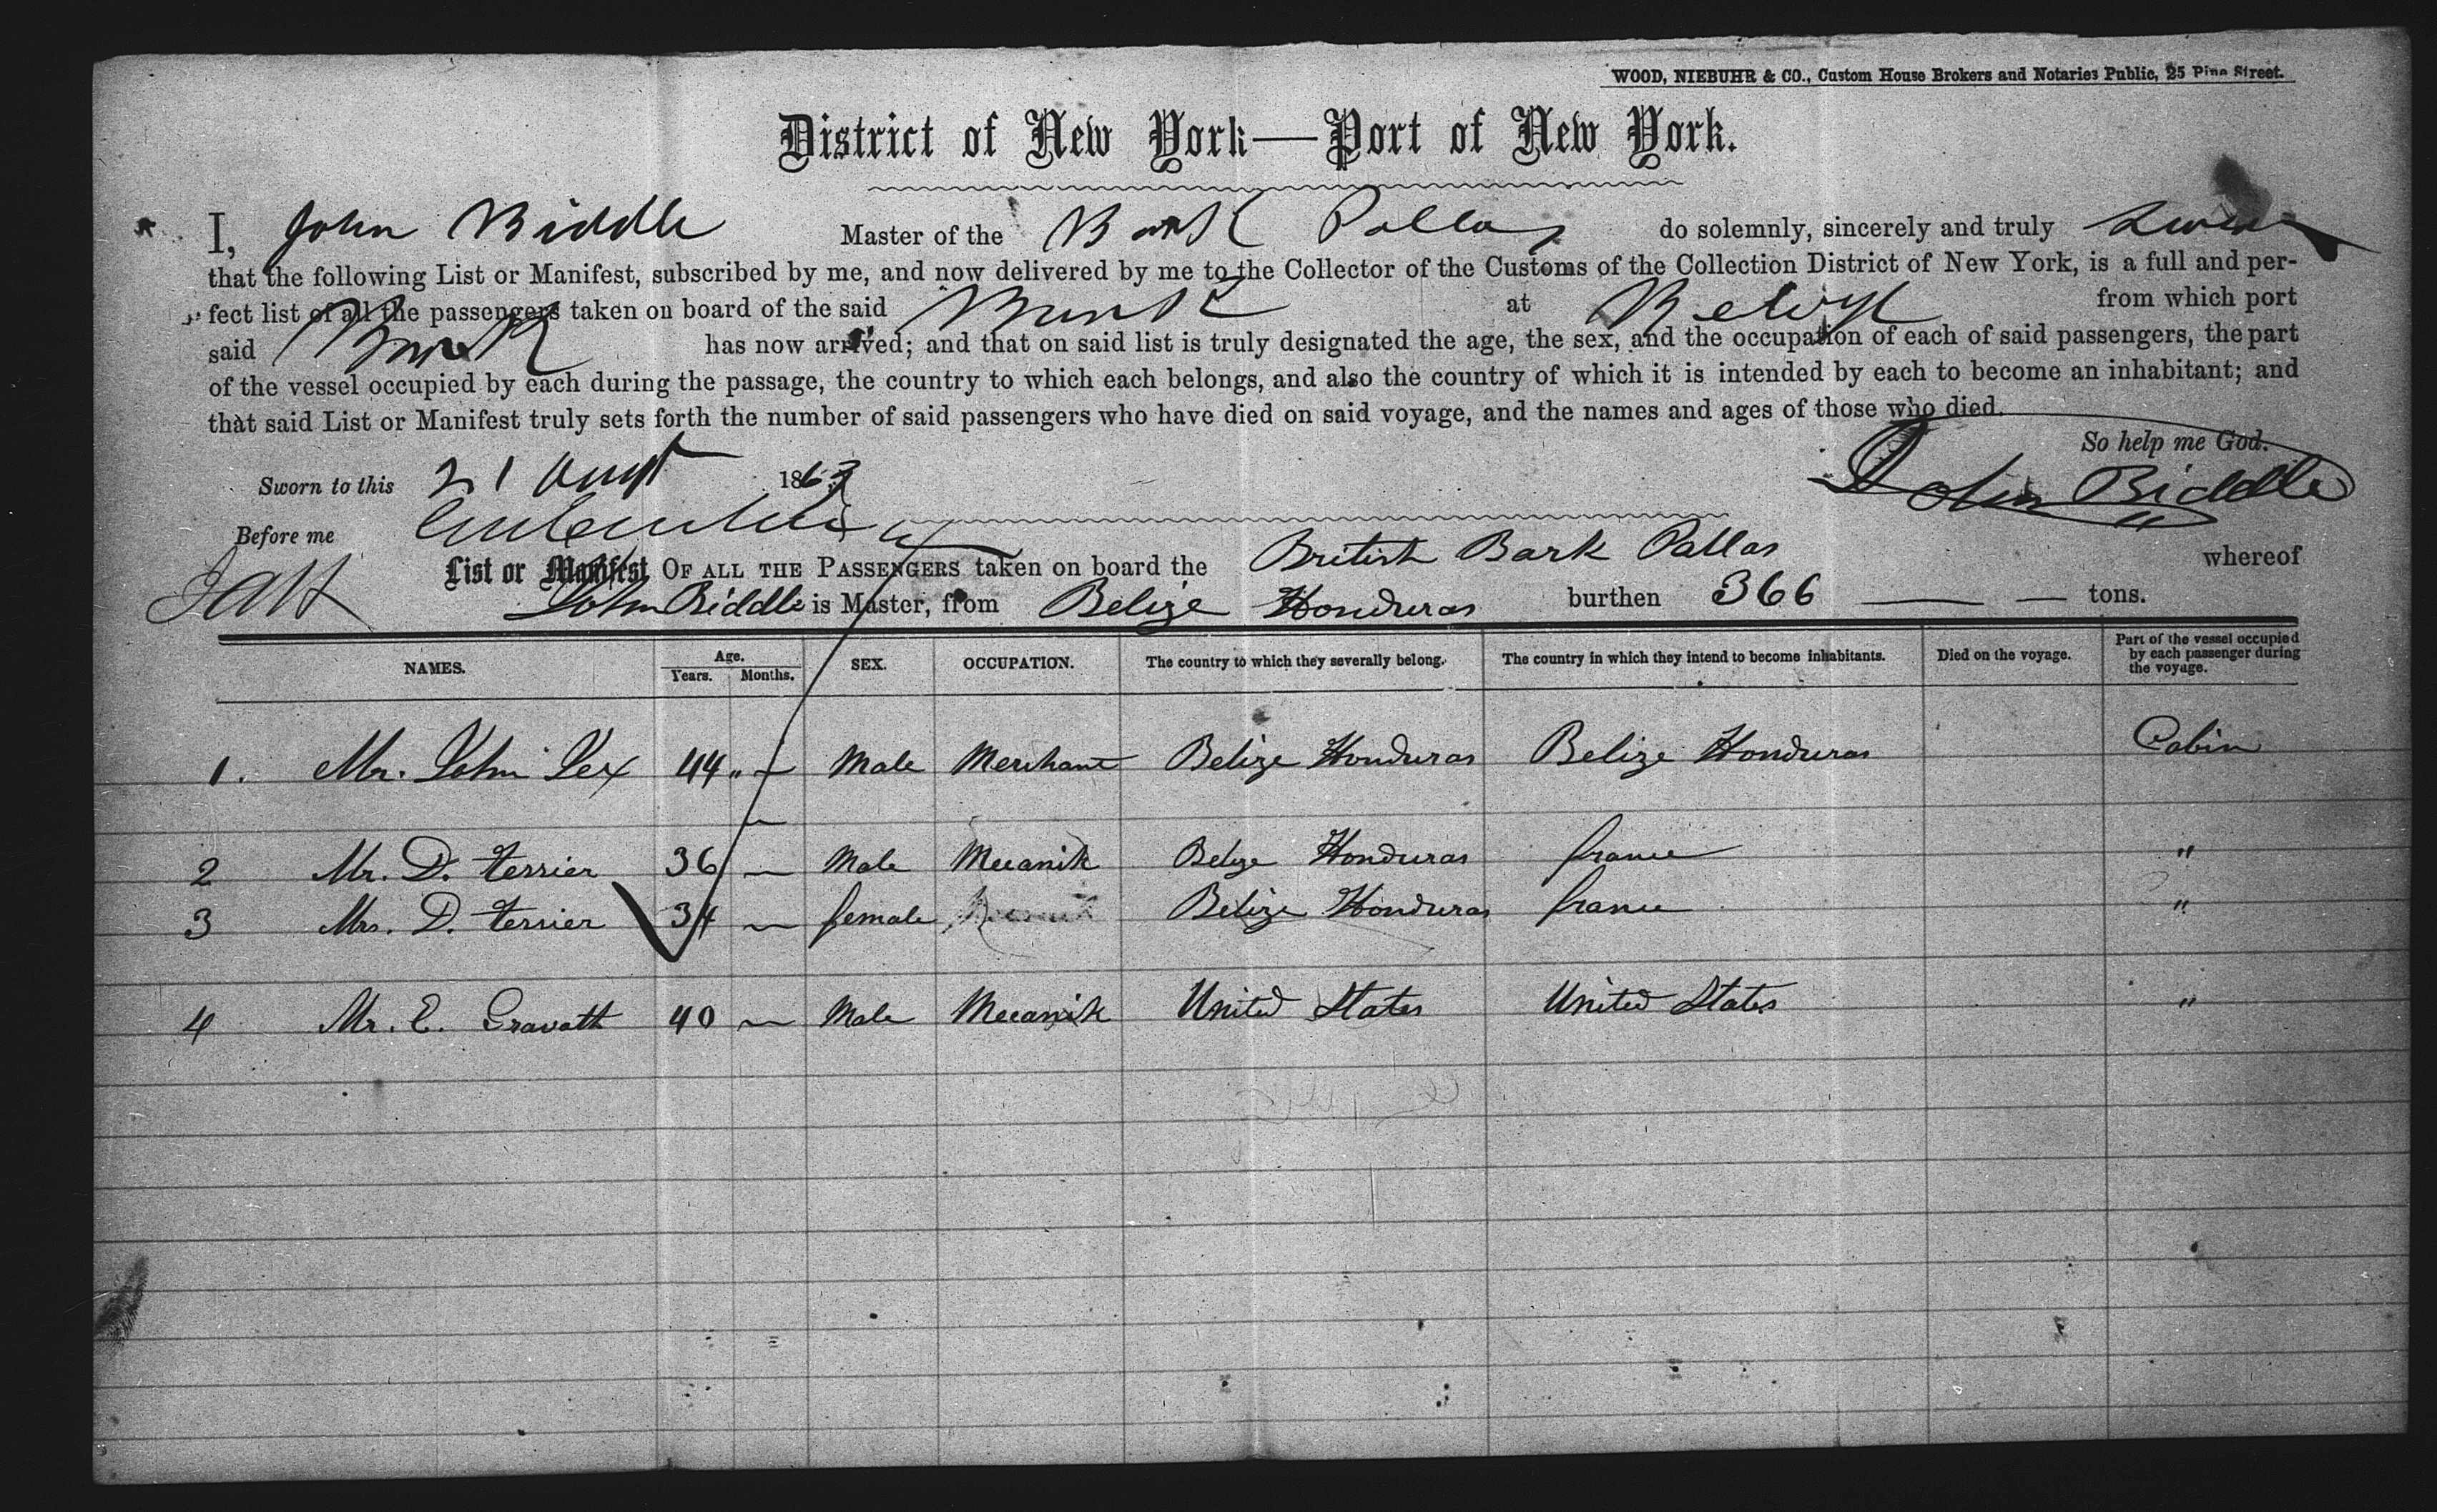 WOOD, NIEBUHR & CO., Custom House Brokers and Notaries Public, 25 Pine Street.
District of New York—Port of New York.
I, John Biddle Master of the Bark Pallas do solemnly, sincerely and truly swear
that the following List or Manifest, subscribed by me, and now delivered by me to the Collector of the Customs of the Collection District of New York, is a full and per-
fect list of all the passengers taken on board of the said Bark at Belize from which port
said Bark has now arrived; and that on said list is truly designated the age, the sex, and the occupation of each of said passengers, the part
of the vessel occupied by each during the passage, the country to which each belongs, and also the country of which it is intended by each to become an inhabitant; and
that said List or Manifest truly sets forth the number of said passengers who have died on said voyage, and the names and ages of those who died.
So help me God.
Sworn to this 21 1863 John Biddle
Before me
List or Manifest OF ALL THE PASSENGERS taken on board the British Bark Pallas whereof
John Biddle is Master, from Belize Honduras burthen 366 — — tons.
NAMES. Age. Years. Months. SEX. OCCUPATION. The country to which they severally belong. The country in which they intend to become inhabitants. Died on the voyage. Part of the vessel occupied by each passenger during the voyage.
1. Mr. John Lex 44 " — Male Merchant Belize Honduras Belize Honduras Cabin
2 Mr. D. terrier 36 — Male Mecanik Belize Honduras france "
3 Mrs. D. terrier 34 — female Belize Honduras france "
4 Mr. E. Gravath 40 — Male Mecanik United States United States "